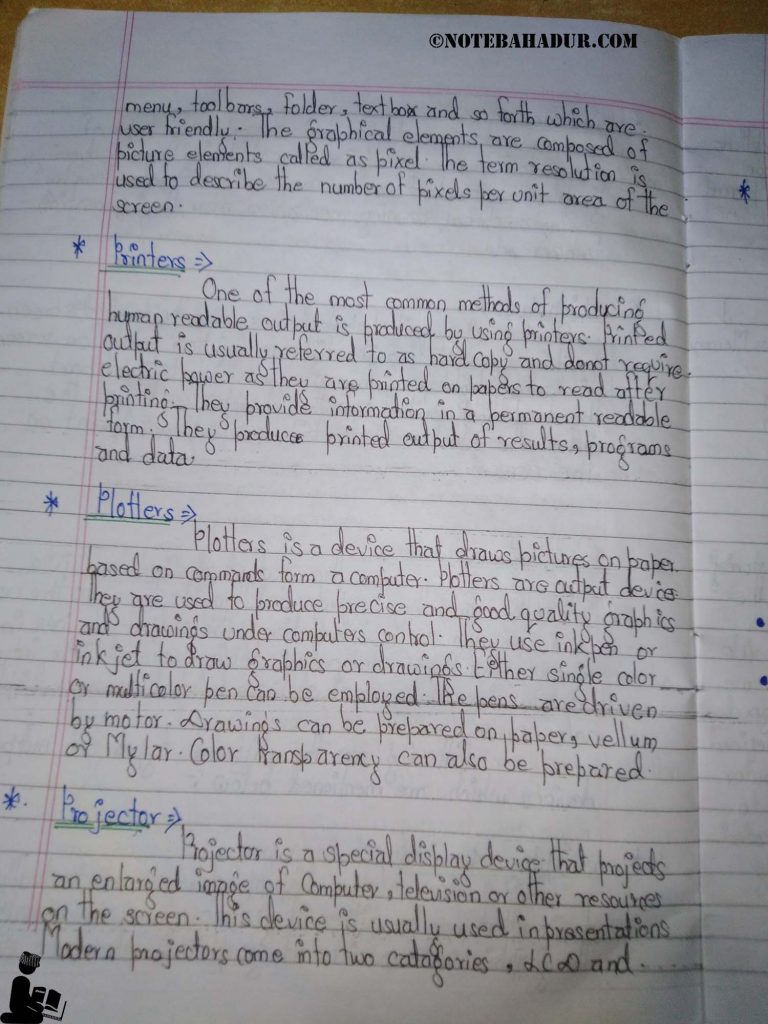 ©NOTEBAHADUR.COM
menu, toolbars, folder, textbox and so forth which are.
user friendly. The graphical elements are composed of
picture elements called as pixel. The term resolution is
used to describe the number of pixels per unit area of the
screen.
* Printers ⇒
One of the most common methods of producing
human readable output is produced by using printers. Printed
output is usually referred to as hard copy and donot require
electric power as they are printed on papers to read after
printing. They provide information in a permanent readable
form. They produces printed output of results, programs
and data.
* Plotters ⇒
Plotters is a device that draws pictures on paper
based on commands form a computer. Plotters are output device
They are used to produce precise and good quality graphics
and drawings under computers control. They use inkpen or
inkjet to draw graphics or drawings. Either single color
or multicolor pen can be employed. The pens are driven
by motor. Drawings can be prepared on paper, vellum
or Mylar. Color transparency can also be prepared.
*. Projector ⇒
Projector is a special display device that projects
an enlarged image of Computer, television or other resources
on the screen. This device is usually used in presentations
Modern projectors come into two catagories, LCD and....